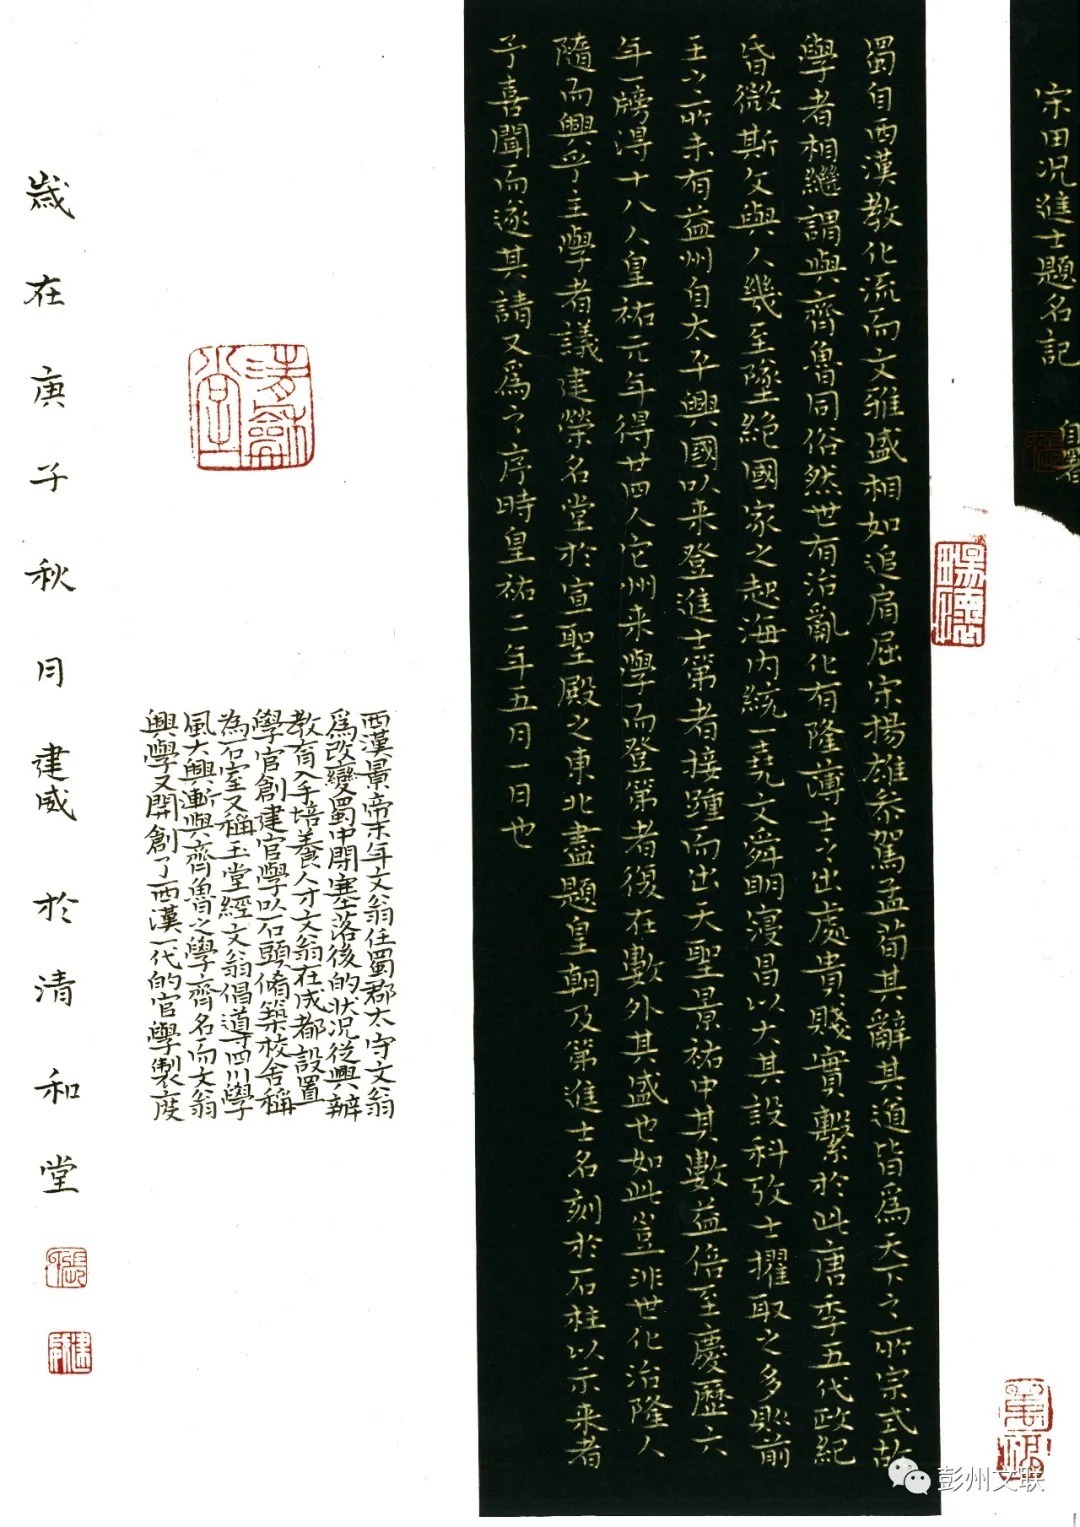 宋田况進士題名記
蜀自西漢教化流而文雅盛相如追肩屈宋揚雄叅駕孟荀其辭其道皆爲天下之所宗式故
學者相繼謂與齊魯同俗然世有治亂化有隆薄士之出處貴賤實繫於此唐季五代政紀
昏微斯文與人幾至墜絕國家之起海内統一堯文舜明寝昌以大其設科攷士擢取之多此前
王之所未有益州自太平興國以来登進士第者接踵而出天聖景祐中其數益倍至慶歷六
年一牓得十八人皇祐元年得廿四人它州来學而登第者復在數外其盛也如此豈非世化治隆人
隨而興乎主學者議建榮名堂於宣聖殿之東北盡題皇朝及第進士名刻於石柱以示来者
予喜聞而遂其請又爲之序時皇祐二年五月一日也
西漢景帝末年文翁任蜀郡太守文翁
爲改變蜀中閉塞落後的状况從興辦
教育入手培養人才文翁在成都設置
學官創建官學以石頭脩築校舍稱
為石室又稱玉堂經文翁倡道寻四川學
風大興漸與齊魯之學齊名而文翁
興學又開創了西漢一代的官學製度
歲在庚子秋月建威於清和堂
彭州文联